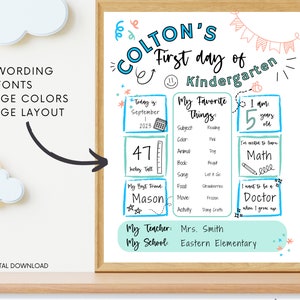 WORDING
FONTS
GE COLORS
GE LAYOUT
TAL DOWNLOAD
COLTON'S
First day of
Kindergarten
Today is
September
1
2023
My Favorite
Things:
Subject: Reading
Color: Pink
Animal: Dog
Book:
Song: Let It Go
Food: Strawberries
Movie: Frozen
Activity:
I am
5
years old
47
inches Tall
I'm excited to learn
Math
My Best Friend:
Mason
I want to be a
Doctor
when I grow up
My Teacher: Mrs. Smith
My School: Eastern Elementary